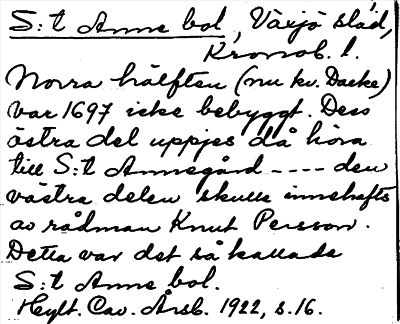 S:t Anne bol, Växjö stad,
Kronob. l.
Norra hälften (nu kv. Dacke)
var 1697 icke bebyggt. Dess
östra del uppges då höra
till S:t Annegård ---- den
västra delen skulle innehafts
av rådman Knut Persson.
Detta var det så kallade
S:t Anne bol.
Hylt. Cav. Årsb. 1922, s. 16.